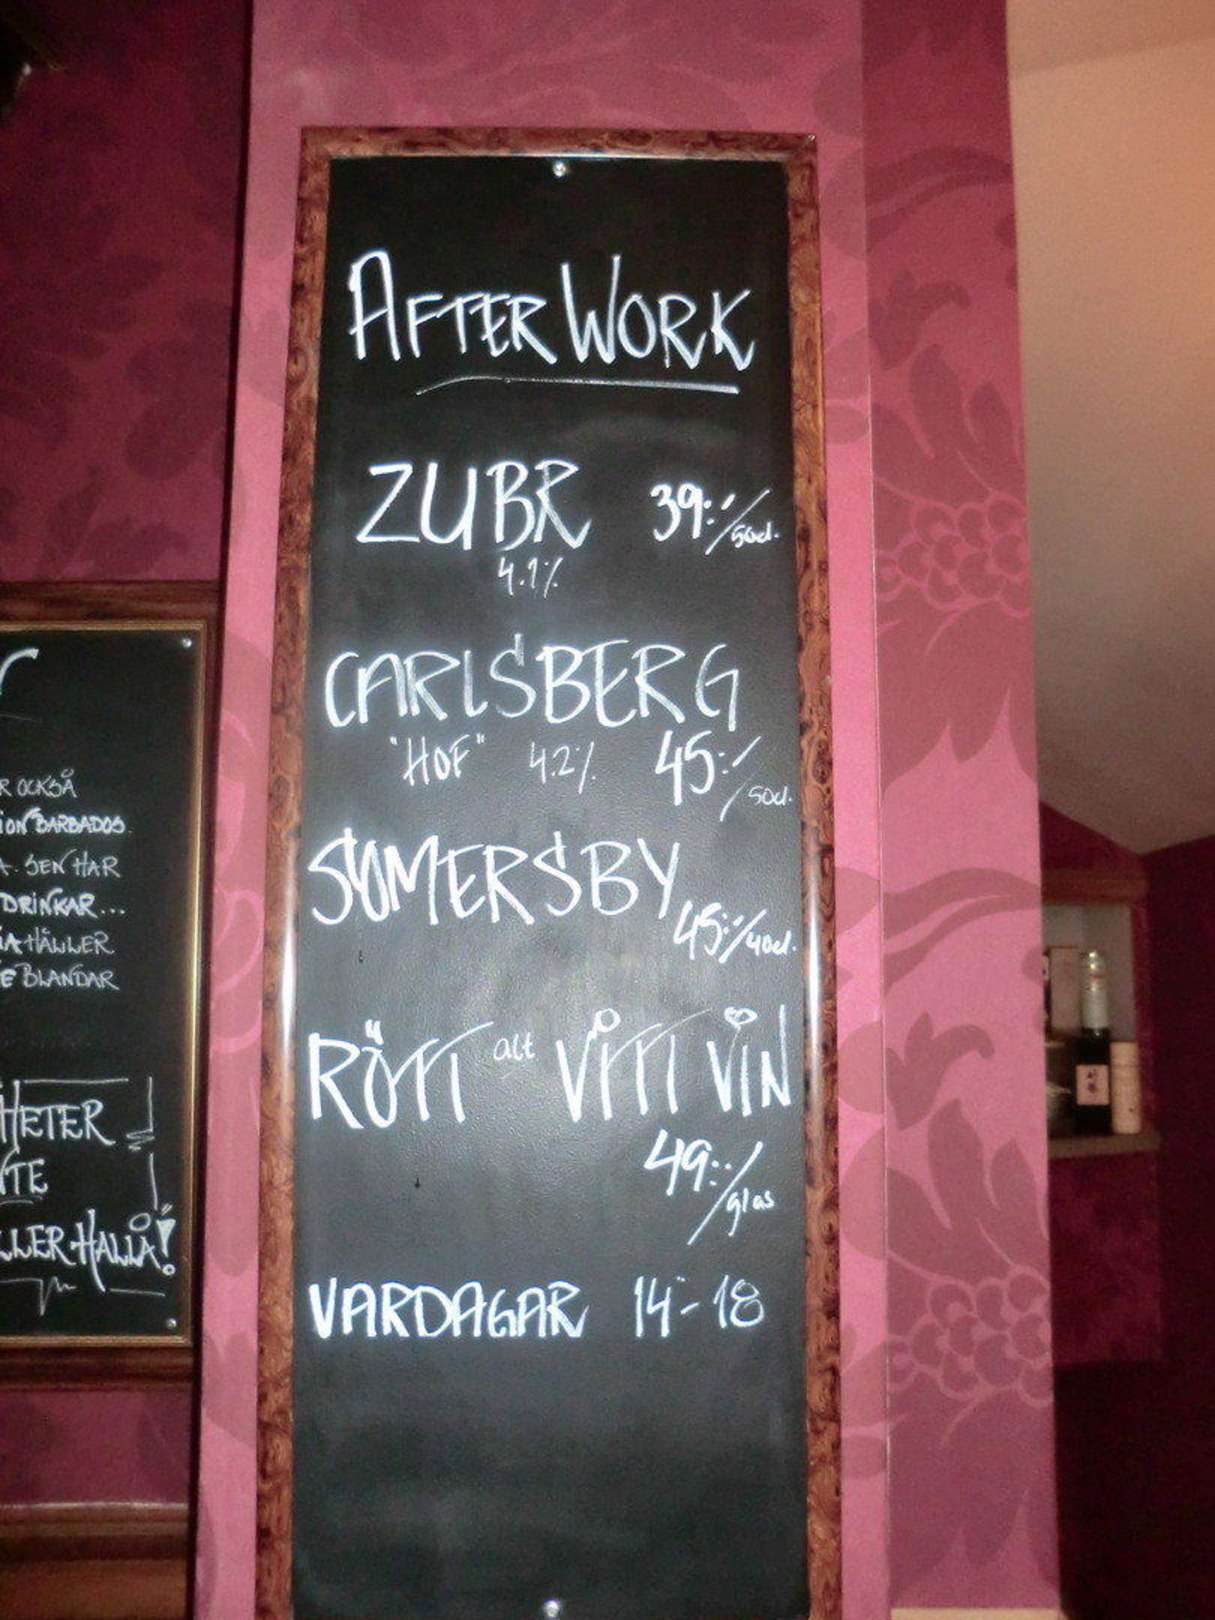 AFTER WORK
ZUBR 39:-/50cl.
4.1%
CARLSBERG
"HOF" 4.2% 45:-/50cl.
SOMERSBY
45:-/40cl.
RÖTT alt VITT VIN
49:-/glas
VARDAGAR 14-18
R OCKSÅ
ION BARBADOS
A. SEN HAR
DRINKAR...
IA HÄLLER
E BLANDAR
HETER
NTE
LLER HALLÅ!